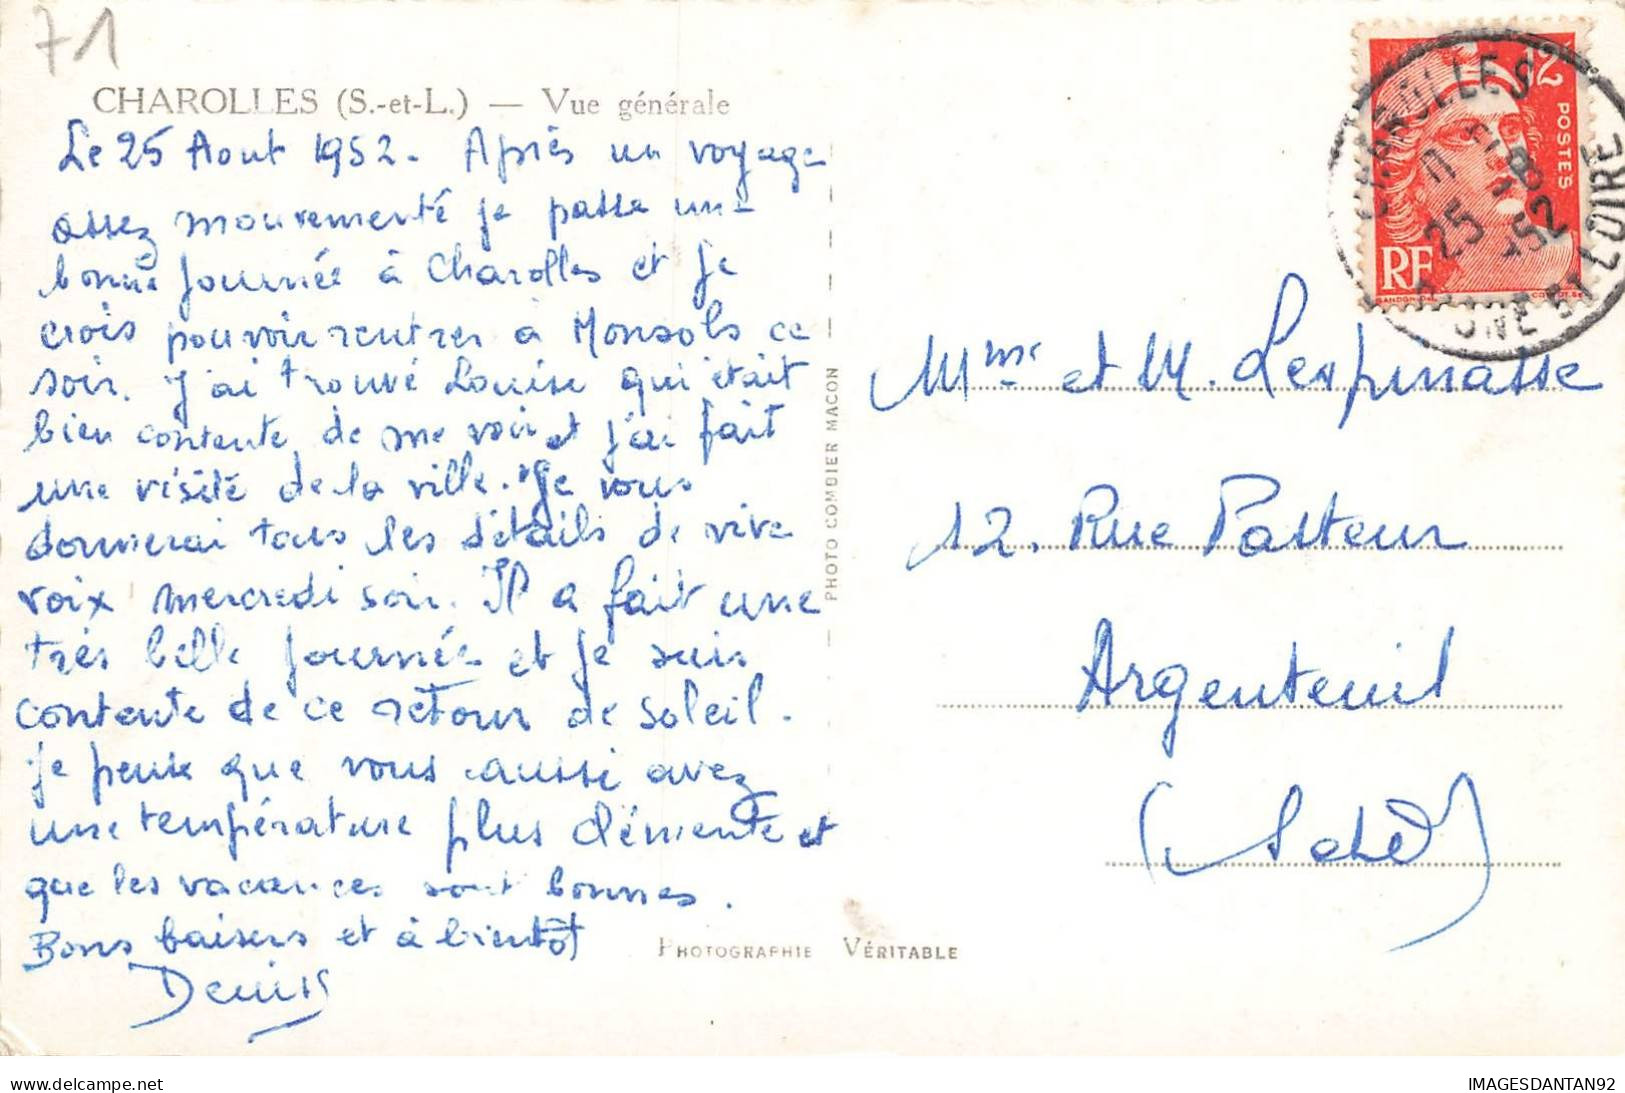 71
CHAROLLES (S.-et-L.) — Vue générale
Le 25 Aout 1952. Après un voyage
assez mouvementé je passe une
bonne journée à Charolles et je
crois pouvoir rentrer à Monsols ce
soir. J'ai trouvé Louise qui était
bien contente de me voir et j'ai fait
une visite de la ville. Je vous
donnerai tous les détails de vive
voix mercredi soir. Il a fait une
très belle journée et je suis
contente de ce retour de soleil.
Je pense que vous aussi avez
une température plus clémente et
que les vacances sont bonnes.
Bons baisers et à bientôt
Denis
PHOTO COMBIER MACON
PHOTOGRAPHIE VÉRITABLE
12
POSTES
RF
CHAROLLES
25 8
52
SAONE ET LOIRE
Mme et M. Lespinasse
12, Rue Pasteur
Argenteuil
(S et O)
www.delcampe.net
IMAGESDANTAN92